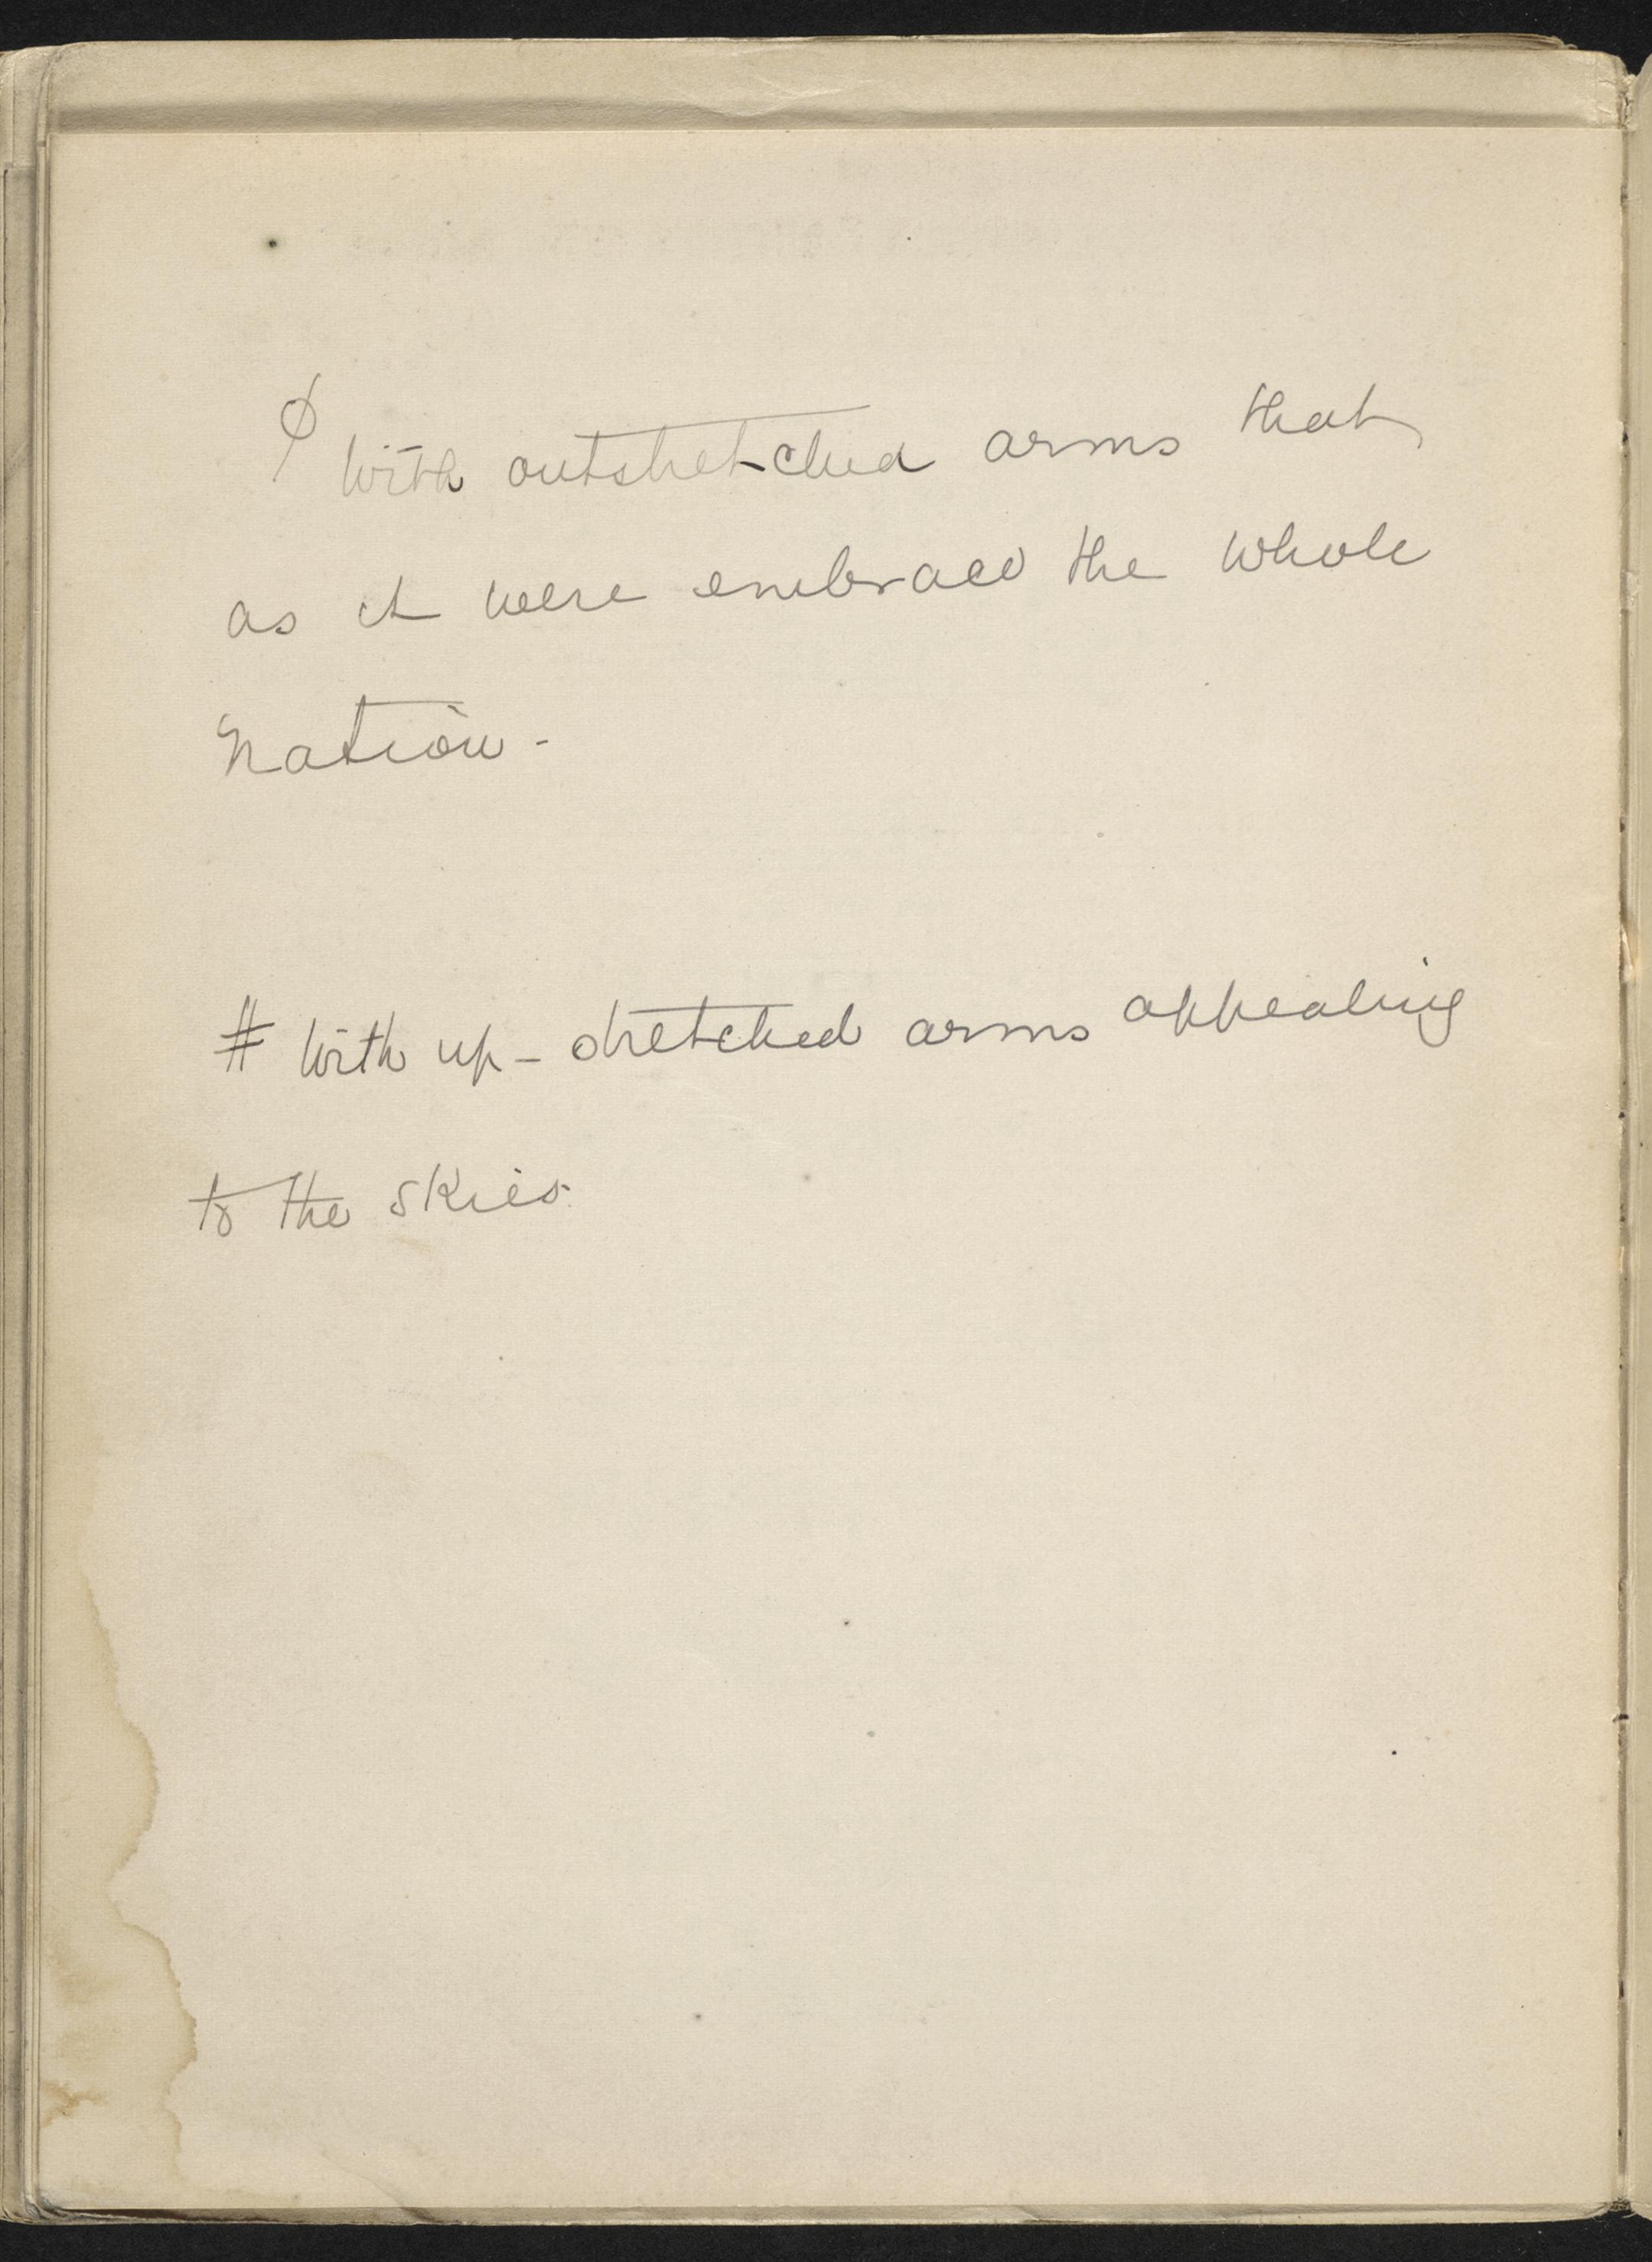 φ with outstretched arms that
as it were embraced the whole
nation -
# with up-stretched arms appealing
to the skies.